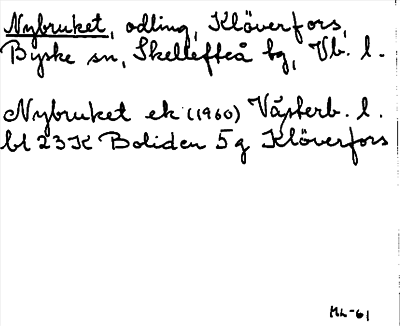 Nybruket, odling, Klöverfors,
Byske sn, Skellefteå tg, Vb. l.
Nybruket ek (1960) Västerb. l.
bl 23K Boliden 5g Klöverfors
ML-61